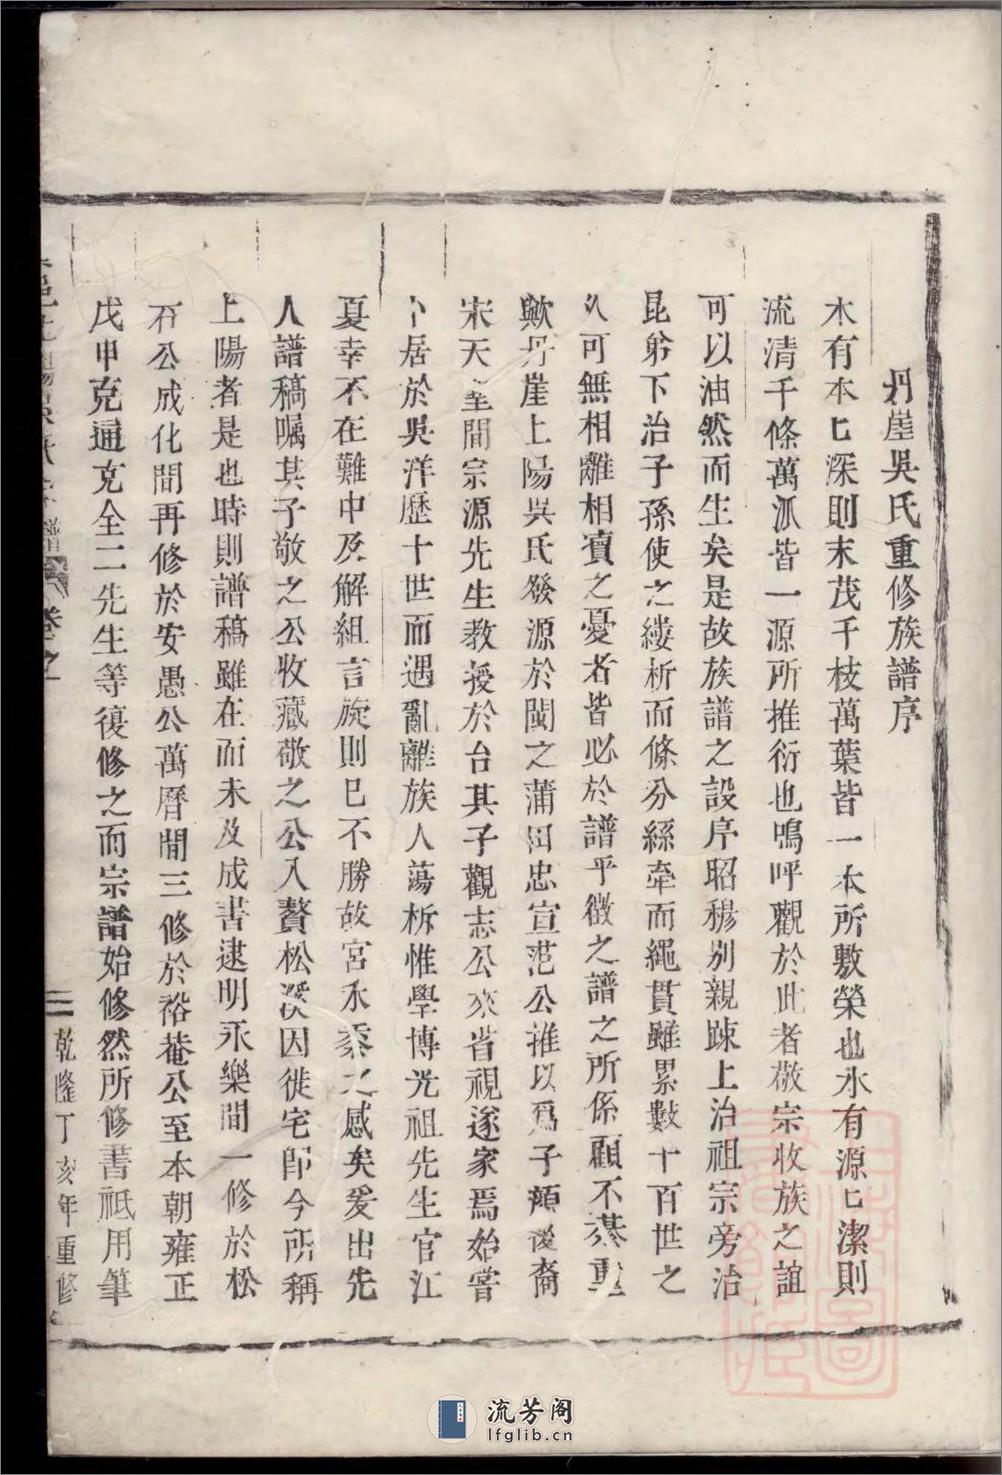 丹崖吳氏重修族譜序
木有本匕深則末茂千枝萬葉皆一本所敷榮也水有源匕潔則
流清千條萬派皆一源所推衍也嗚呼觀於此者敬宗收族之誼
可以油然而生矣是故族譜之設序昭穆別親踈上治祖宗旁治
昆弟下治子孫使之縷析而條分絲牽而繩貫雖累數十百世之
久可無相離相瀆之憂者皆必於譜乎徵之譜之所係顧不綦重
歟丹崖上陽吳氏發源於閩之蒲田忠宣范公推以爲子頠後裔
宋天聖間宗源先生教授於台其子觀志公來省視遂家焉始嘗
卜居於吳洋歷十世而遇亂離族人蕩柝惟學博光祖先生官江
夏幸不在難中及解組言旋則已不勝故宮禾黍之感矣爰出先
人譜稿嘱其子敬之公收藏敬之公入贅松溪因徙宅即今所稱
上陽者是也時則譜稿雖在而未及成書逮明永樂間一修於松
石公成化間再修於安愚公萬曆間三修於裕菴公至本朝雍正
戊甲克通克全二先生等復修之而宗譜始修然所修書祗用筆
卷之
二 乾隆丁亥年重修
流芳阁
lfglib.cn